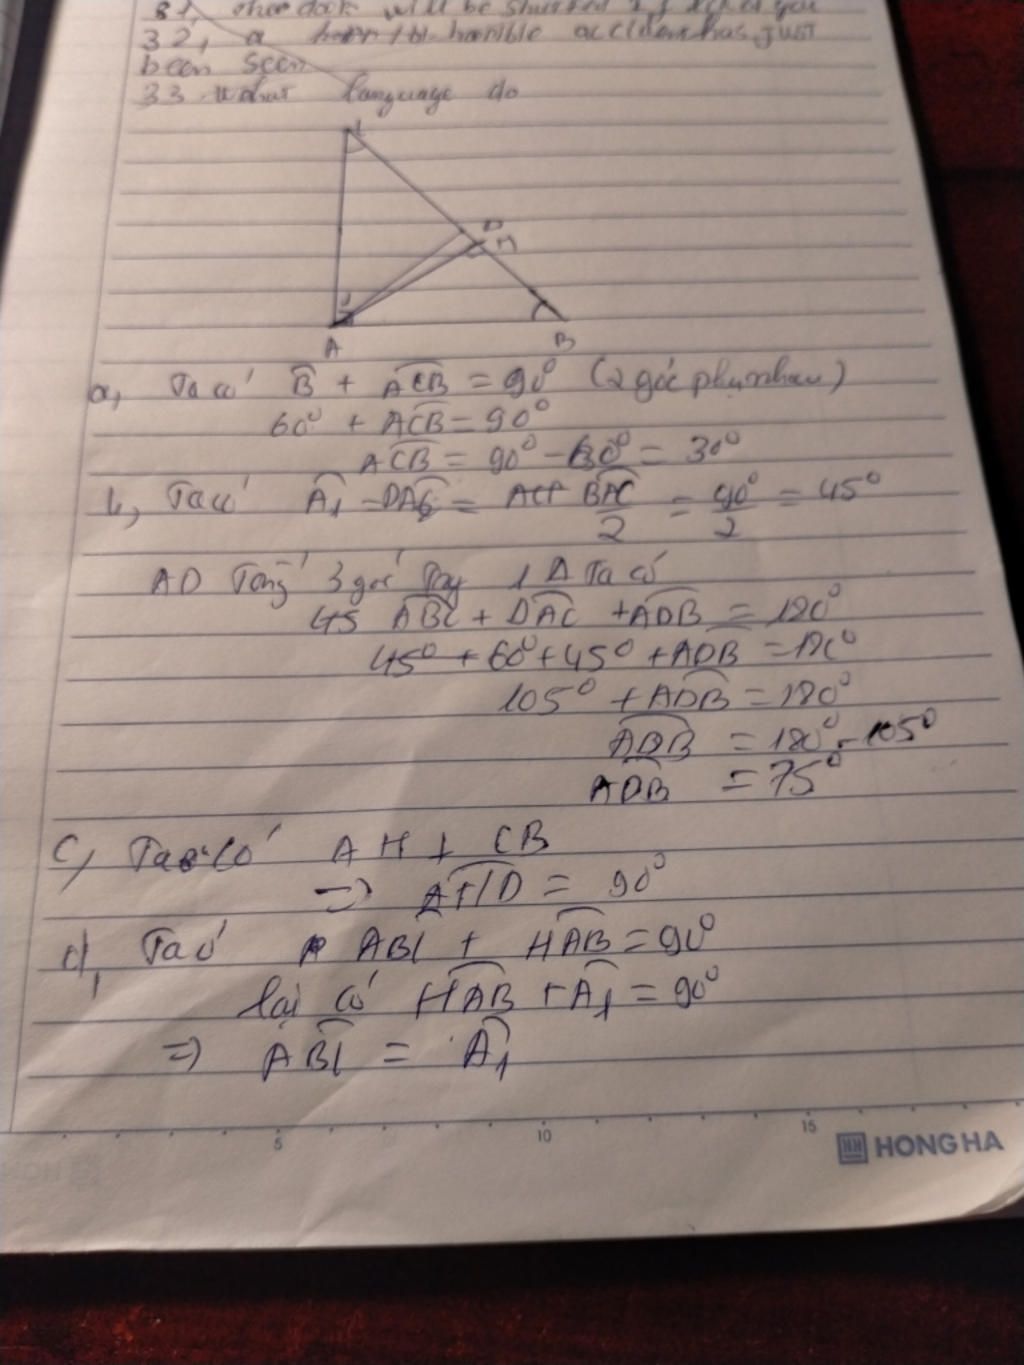 32, a horrible accident has just
been seen
33. What language do
D
H
A
B
a, Ta có B + ACB = 90° (2 góc phụ nhau)
60° + ACB = 90°
ACB = 90° - 60° = 30°
b, Ta có A1 = DAC = BAC/2 = 90°/2 = 45°
AD Tổng 3 góc 1 Δ Ta có
45 ABC + DAC + ADB = 180°
45° + 60° + 45° + ADB = 180°
105° + ADB = 180°
ADB = 180° - 105°
ADB = 75°
c, Ta có AH ⊥ CB
=> AHD = 90°
d, Ta có ABC + HAB = 90°
lại có HAB + A1 = 90°
=> ABC = A1
5 10 15
HONG HA